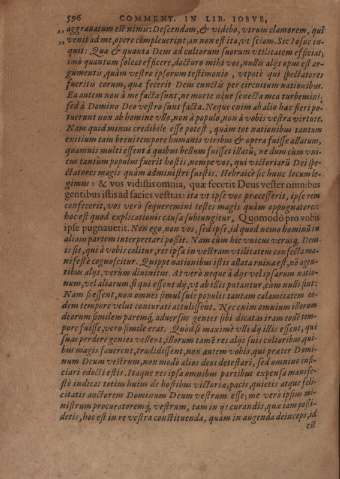 596 COMMENT. IN LIB. IOSVE,
aggrauatum est nimis: Descendam, & videbo, vtrum clamorem, qui
venit ad me, opere compleuerint, an non est ita, vt sciam. Sic Iosue in-
quit: Quæ & quanta Deus ad cultorum suorum vtilitatem efficiat,
imò quantum soleat efficere, docturo mihi vos, nullis alijs opus est ar-
gumentis, quàm vestro ipsorum testimonio, vtpotè qui spectatores
fueritis eorum, quæ fecerit Deus cunctis per circuitum nationibus.
Ea autem non à me facta sunt, ne morte aut senecta mea turbemini,
sed à Domino Deo vestro sunt facta. Neque enim ab alio hæc fieri po-
tuerunt non ab homine vllo, non à populo, non à vobis vestra virtute.
Nam quid minus credibile esse potest, quàm tot nationibus tantum
exitium tam breui tempore humanis viribus & opera fuisse allatum,
quarum multi essent à quibus bellum fuisset illatum, ne dum cùm vni-
cus tantùm populus fuerit hostis, nempe vos, qui victoriarū Dei spe-
ctatores magis quàm administri fuistis. Hebraicè sic hunc locum le-
gimus: & vos vidistis omnia, quæ fecerit Deus vester omnibus
gentibus istis ad facies vestras: ita vt ipse vos præcesserit, ipse rem
confecerit, vos verò superuenientes testes magis quàm oppugnatores:
hoc est quod explicationis causa subiungitur, Quomodò pro vobis
ipse pugnauerit. Nemo ergo non vos, sed ipse, id quod nemo hominū in
aliam partem interpretari possit. Nam cùm hic vnicus verusq́; Deus
sit, qui à vobis colitur, res ipsa in vestram vtilitatem confecta ma-
nifestè cognoscitur. Quippe nationibus istis allata ruina est, nō agen-
tibus alijs, verùm diuinitus. At verò neque à dijs vel ipsarum natio-
num, vel aliarum, si qui essent dij, vt ab illis putantur, cùm nulli sint:
Nam si essent, non omnes simul suis populis tantam calamitatem eo-
dem tempore velut coniurati attulissent. Nec enim omnium illorum
deorum similem paremq́; aduersum gentes sibi dicatas iram eodē tem-
pore fuisse, vero simile erat. Quòd si maximè vlli dij illis essent, qui
suas perdere gentes vellent, illorum tamē res alijs suis cultoribus, qui-
bus magis fauerent, tradidissent, non autem vobis, qui præter Domi-
num Deum vestrum, non modò alios deos detestari, sed omnino nes-
ciari edocti estis. Itaque res ipsa omnibus partibus expensa manife-
stò indicat totius huius de hostibus victoriæ, pacis, quietis atque feli-
citatis auctorem Dominum Deum vestrum esse; me verò ipsius mi-
nistrum procuratoremq́; vestrum, tam in ijs curandis, quæ iam possi-
detis, hoc est in re vestra constituenda, quàm in augenda deinceps, id
est